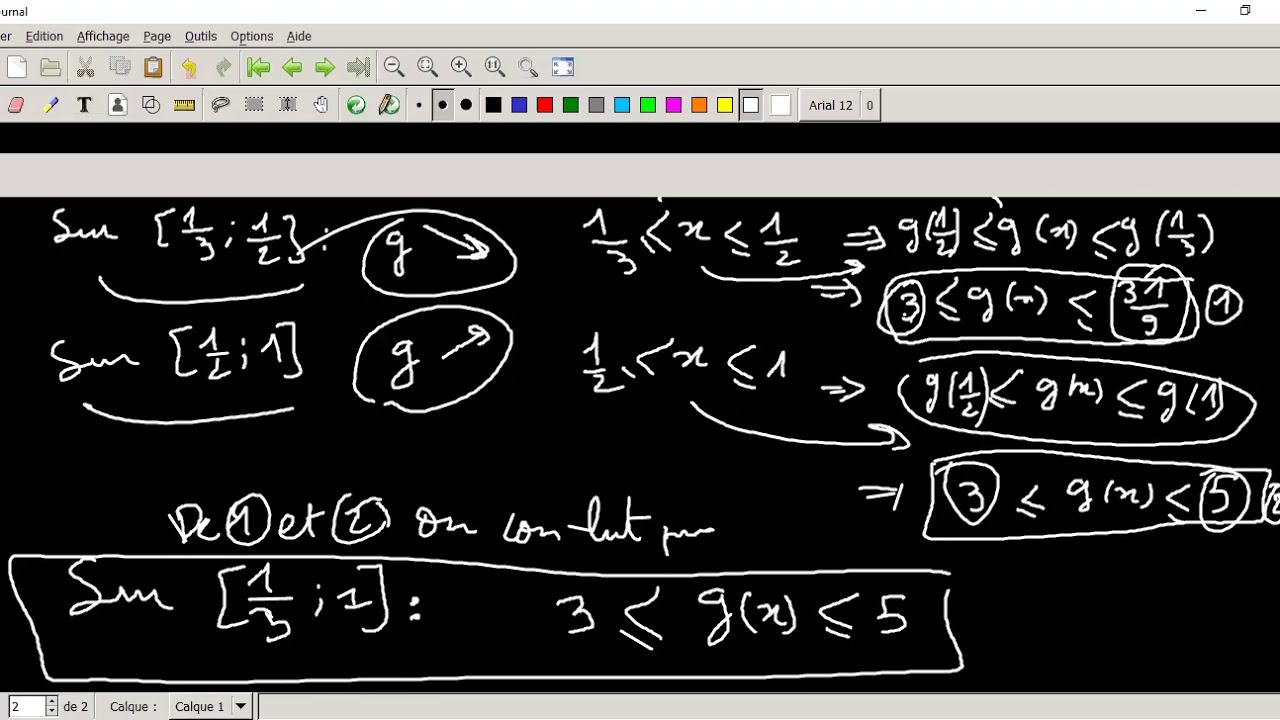 ournal
er Edition Affichage Page Outils Options Aide
Arial 12 0
Sur [1/3 ; 1/2] : g ↘ 1/3 ≤ x ≤ 1/2 ⇒ g(1/2) ≤ g(x) ≤ g(1/3)
⇒ 3 ≤ g(x) ≤ 31/9 ①
Sur [1/2 ; 1] g ↗ 1/2 ≤ x ≤ 1 ⇒ g(1/2) ≤ g(x) ≤ g(1)
⇒ 3 ≤ g(x) ≤ 5 ②
De ① et ② on conclut que
Sur [1/3 ; 1] : 3 ≤ g(x) ≤ 5
2 de 2 Calque : Calque 1